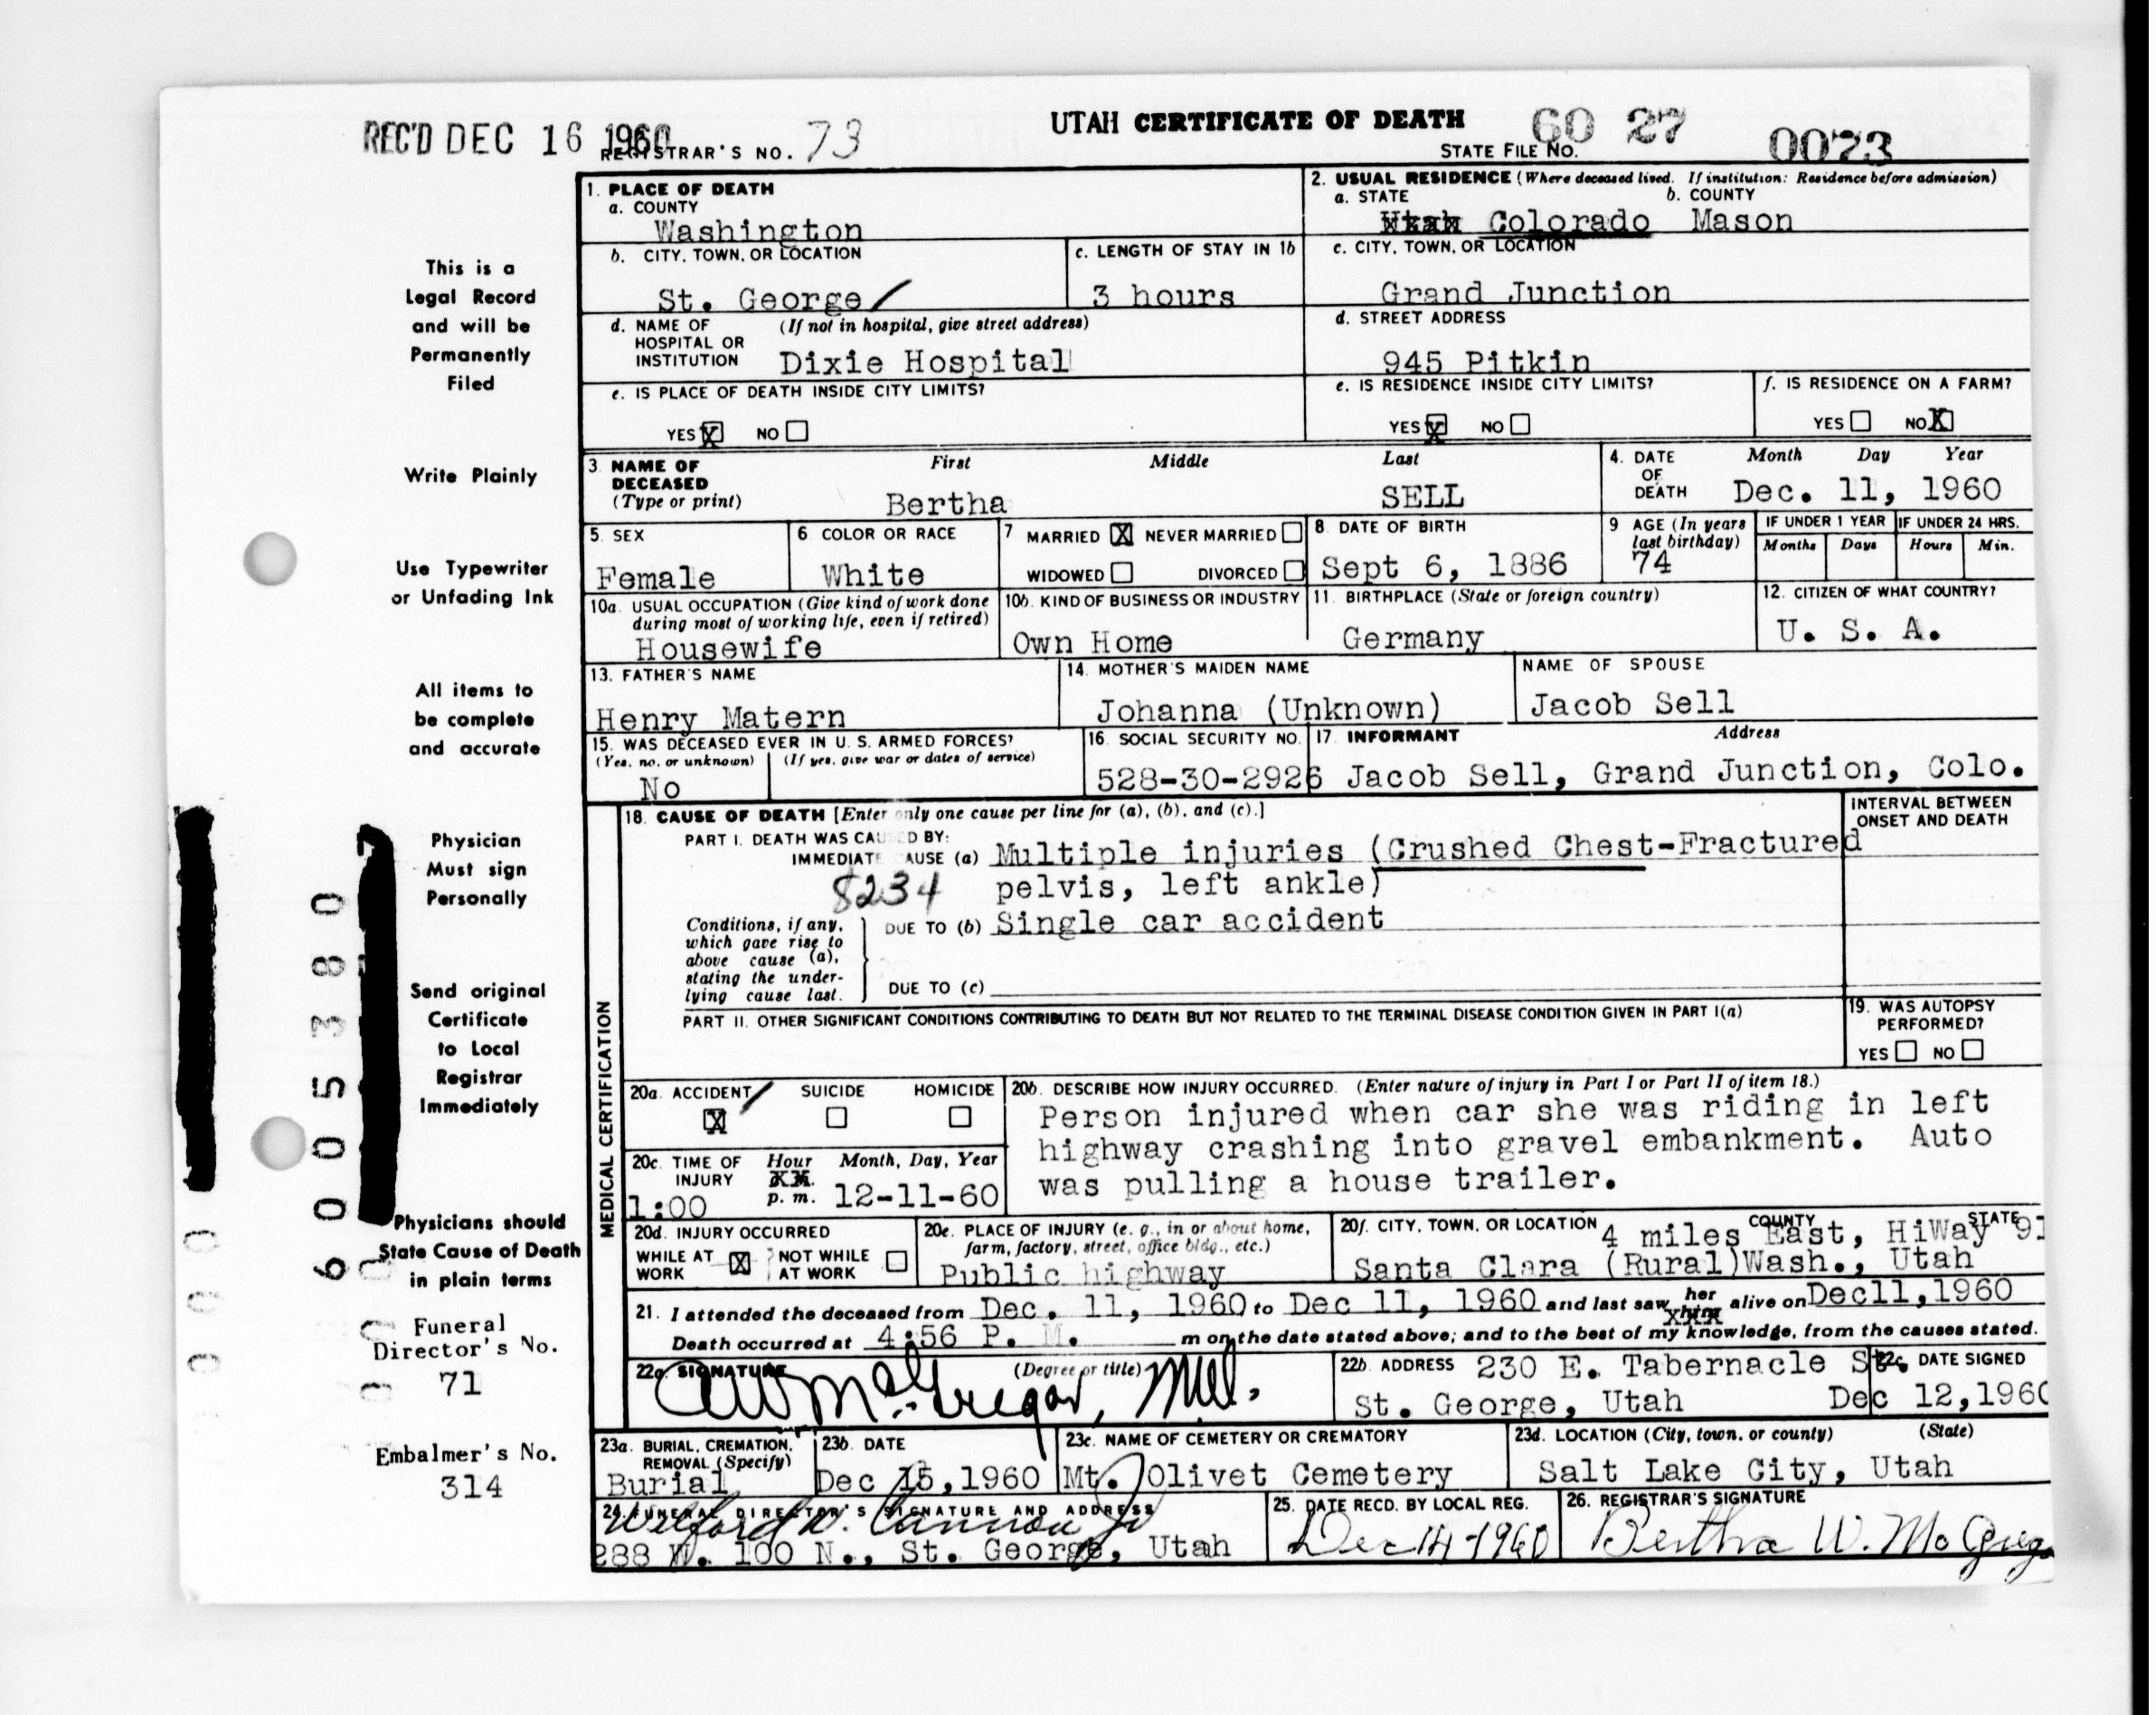 REC'D DEC 16 1960
REGISTRAR'S NO. 73
UTAH CERTIFICATE OF DEATH
STATE FILE NO. 60 27 0073
This is a
Legal Record
and will be
Permanently
Filed
Write Plainly
Use Typewriter
or Unfading Ink
All items to
be complete
and accurate
Physician
Must sign
Personally
Send original
Certificate
to Local
Registrar
Immediately
Physicians should
State Cause of Death
in plain terms
Funeral
Director's No.
71
Embalmer's No.
314
6005380
1. PLACE OF DEATH
a. COUNTY
Washington
b. CITY, TOWN, OR LOCATION
St. George
c. LENGTH OF STAY IN 1b
3 hours
d. NAME OF HOSPITAL OR INSTITUTION (If not in hospital, give street address)
Dixie Hospital
e. IS PLACE OF DEATH INSIDE CITY LIMITS?
YES X NO
2. USUAL RESIDENCE (Where deceased lived. If institution: Residence before admission)
a. STATE b. COUNTY
Utah Colorado Mason
c. CITY, TOWN, OR LOCATION
Grand Junction
d. STREET ADDRESS
945 Pitkin
e. IS RESIDENCE INSIDE CITY LIMITS?
YES X NO
f. IS RESIDENCE ON A FARM?
YES NO X
3. NAME OF DECEASED (Type or print)
First Middle Last
Bertha SELL
4. DATE OF DEATH
Month Day Year
Dec. 11, 1960
5. SEX
Female
6. COLOR OR RACE
White
7 MARRIED X NEVER MARRIED
WIDOWED DIVORCED
8. DATE OF BIRTH
Sept 6, 1886
9 AGE (In years last birthday)
74
IF UNDER 1 YEAR
Months Days
IF UNDER 24 HRS.
Hours Min.
10a. USUAL OCCUPATION (Give kind of work done during most of working life, even if retired)
Housewife
10b. KIND OF BUSINESS OR INDUSTRY
Own Home
11. BIRTHPLACE (State or foreign country)
Germany
12. CITIZEN OF WHAT COUNTRY?
U. S. A.
13. FATHER'S NAME
Henry Matern
14. MOTHER'S MAIDEN NAME
Johanna (Unknown)
NAME OF SPOUSE
Jacob Sell
15. WAS DECEASED EVER IN U. S. ARMED FORCES?
(Yes, no, or unknown) (If yes, give war or dates of service)
No
16. SOCIAL SECURITY NO.
528-30-2926
17. INFORMANT Address
Jacob Sell, Grand Junction, Colo.
MEDICAL CERTIFICATION
18. CAUSE OF DEATH [Enter only one cause per line for (a), (b), and (c).]
INTERVAL BETWEEN ONSET AND DEATH
PART I. DEATH WAS CAUSED BY:
IMMEDIATE CAUSE (a) Multiple injuries (Crushed Chest-Fractured
8234 pelvis, left ankle)
Conditions, if any, which gave rise to above cause (a), stating the underlying cause last.
DUE TO (b) Single car accident
DUE TO (c)
PART II. OTHER SIGNIFICANT CONDITIONS CONTRIBUTING TO DEATH BUT NOT RELATED TO THE TERMINAL DISEASE CONDITION GIVEN IN PART I(a)
19. WAS AUTOPSY PERFORMED?
YES NO
20a. ACCIDENT SUICIDE HOMICIDE
X
20b. DESCRIBE HOW INJURY OCCURRED. (Enter nature of injury in Part I or Part II of item 18.)
Person injured when car she was riding in left
highway crashing into gravel embankment. Auto
was pulling a house trailer.
20c. TIME OF INJURY Hour Month, Day, Year
1:00 p. m. 12-11-60
20d. INJURY OCCURRED
WHILE AT WORK X NOT WHILE AT WORK
20e. PLACE OF INJURY (e. g., in or about home, farm, factory, street, office bldg., etc.)
Public highway
20f. CITY, TOWN, OR LOCATION COUNTY STATE
4 miles East, HiWay 91
Santa Clara (Rural) Wash., Utah
21. I attended the deceased from Dec. 11, 1960 to Dec 11, 1960 and last saw her him alive on Dec11,1960
Death occurred at 4:56 P. M. m on the date stated above; and to the best of my knowledge, from the causes stated.
22a. SIGNATURE (Degree or title)
McGregor, M.D.
22b. ADDRESS 230 E. Tabernacle St.
St. George, Utah
22c. DATE SIGNED
Dec 12,1960
23a. BURIAL, CREMATION, REMOVAL (Specify)
Burial
23b. DATE
Dec 15,1960
23c. NAME OF CEMETERY OR CREMATORY
Mt. Olivet Cemetery
23d. LOCATION (City, town, or county) (State)
Salt Lake City, Utah
24. FUNERAL DIRECTOR'S SIGNATURE AND ADDRESS
Welford W. Cannon Jr
288 W. 100 N., St. George, Utah
25. DATE RECD. BY LOCAL REG.
Dec 14-1960
26. REGISTRAR'S SIGNATURE
Bertha W. McGreg